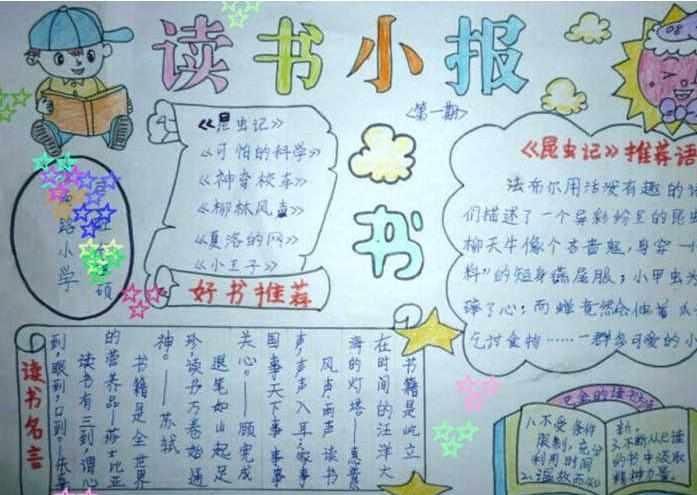 读书小报
<第一期>
《昆虫记》
《可怕的科学》
《神奇校车》
《柳林风声》
《夏洛的网》
《小王子》
好书推荐
路小学
硕
书
《昆虫记》推荐语
法布尔用活泼有趣的
们描述了一个异彩纷呈的昆
柳天牛像个吝啬鬼，身穿一
料"的短身燕尾服；小甲虫
碎了心；而蝉竟然会伸着
乞讨食物……一群多可爱的小
读书名言
书籍是屹立
在时间的汪洋大
海的灯塔——
风声雨声读书
声，声声入耳；家事
国事天下事，事事
关心。——顾宪成
退笔如山起足
珍，读书万卷始通
神。——苏轼
书籍是全世界
的营养品——莎士比亚
读书有三到，谓心
到，眼到，口到。——朱熹
1.不受条件
限制，充分
利用时间
2.温故而知
新。
3.不断从已读
的书中汲取
精神力量。